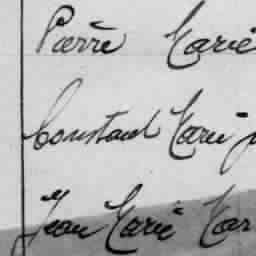 Pierre Marie
Constant Marie
Jean Marie Mar